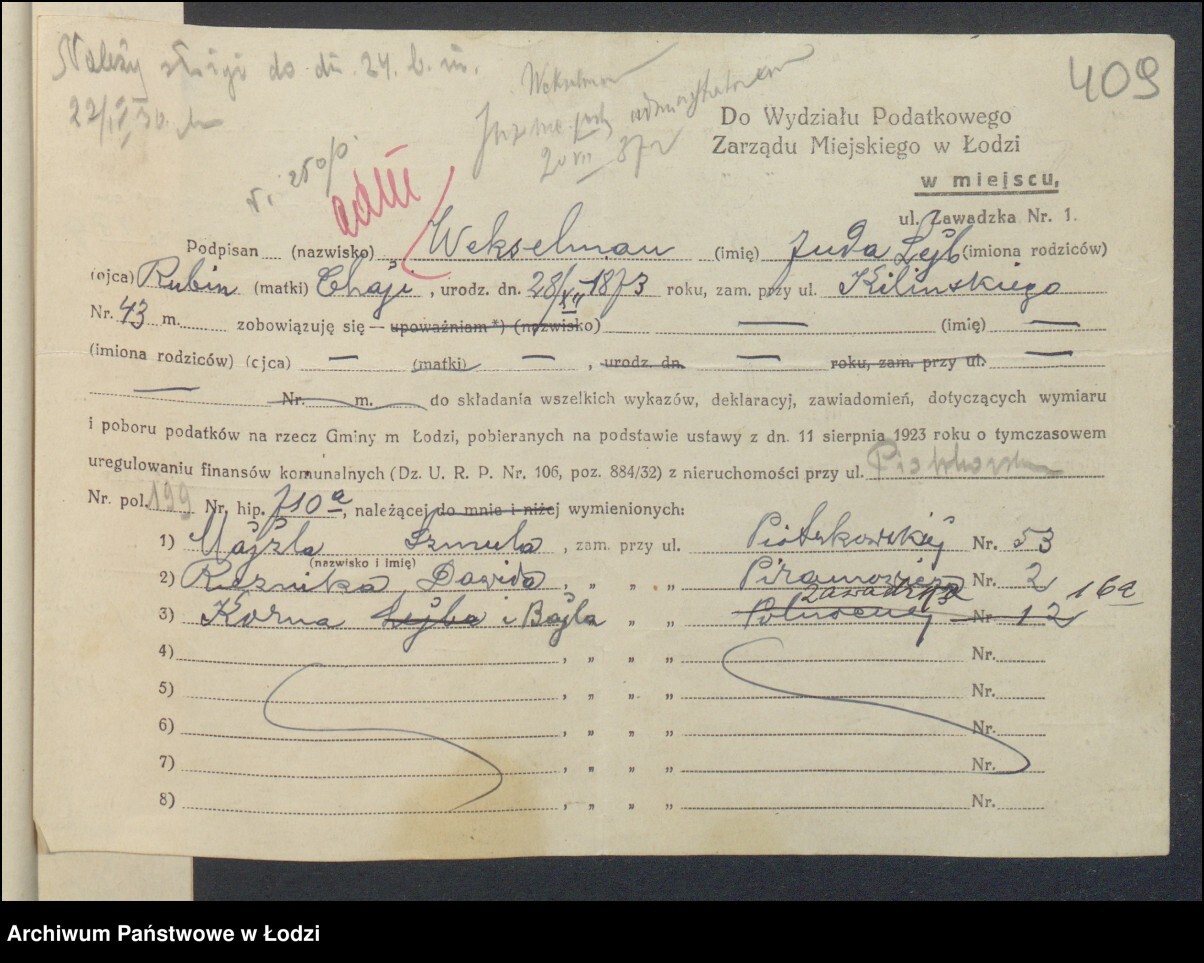 Należy do dn. 24. b. m.
409
Wekselman
Do Wydziału Podatkowego
Zarządu Miejskiego w Łodzi
w miejscu,
ul. Zawadzka Nr. 1.
Podpisan (nazwisko) Wekselman (imię) Juda Lejb (imiona rodziców)
(ojca) Rubin (matki) Chaji, urodz. dn. 28/XII 1873 roku, zam. przy ul. Kilińskiego
Nr. 43 m. zobowiązuję się — upoważniam*) (nazwisko) — (imię) —
(imiona rodziców) (ojca) — (matki) — , urodz. dn. — roku, zam. przy ul. —
— Nr. m. do składania wszelkich wykazów, deklaracyj, zawiadomień, dotyczących wymiaru
i poboru podatków na rzecz Gminy m Łodzi, pobieranych na podstawie ustawy z dn. 11 sierpnia 1923 roku o tymczasowem
uregulowaniu finansów komunalnych (Dz. U. R. P. Nr. 106, poz. 884/32) z nieruchomości przy ul. Piotrkowska
Nr. pol. 199 Nr. hip. 710a, należącej do mnie i niżej wymienionych:
1) Majzla Szmula, zam. przy ul. Piotrkowskiej Nr. 53
(nazwisko i imię)
2) Reznika Dawida, „ „ „ Piramowicza Nr. 2
Zawadzka 16a
3) Korna Lejba i Bajla „ „ Północnej Nr. 12
4) , „ „ „ Nr.
5) , „ „ „ Nr.
6) , „ „ „ Nr.
7) , „ „ „ Nr.
8) , „ „ „ Nr.
Archiwum Państwowe w Łodzi